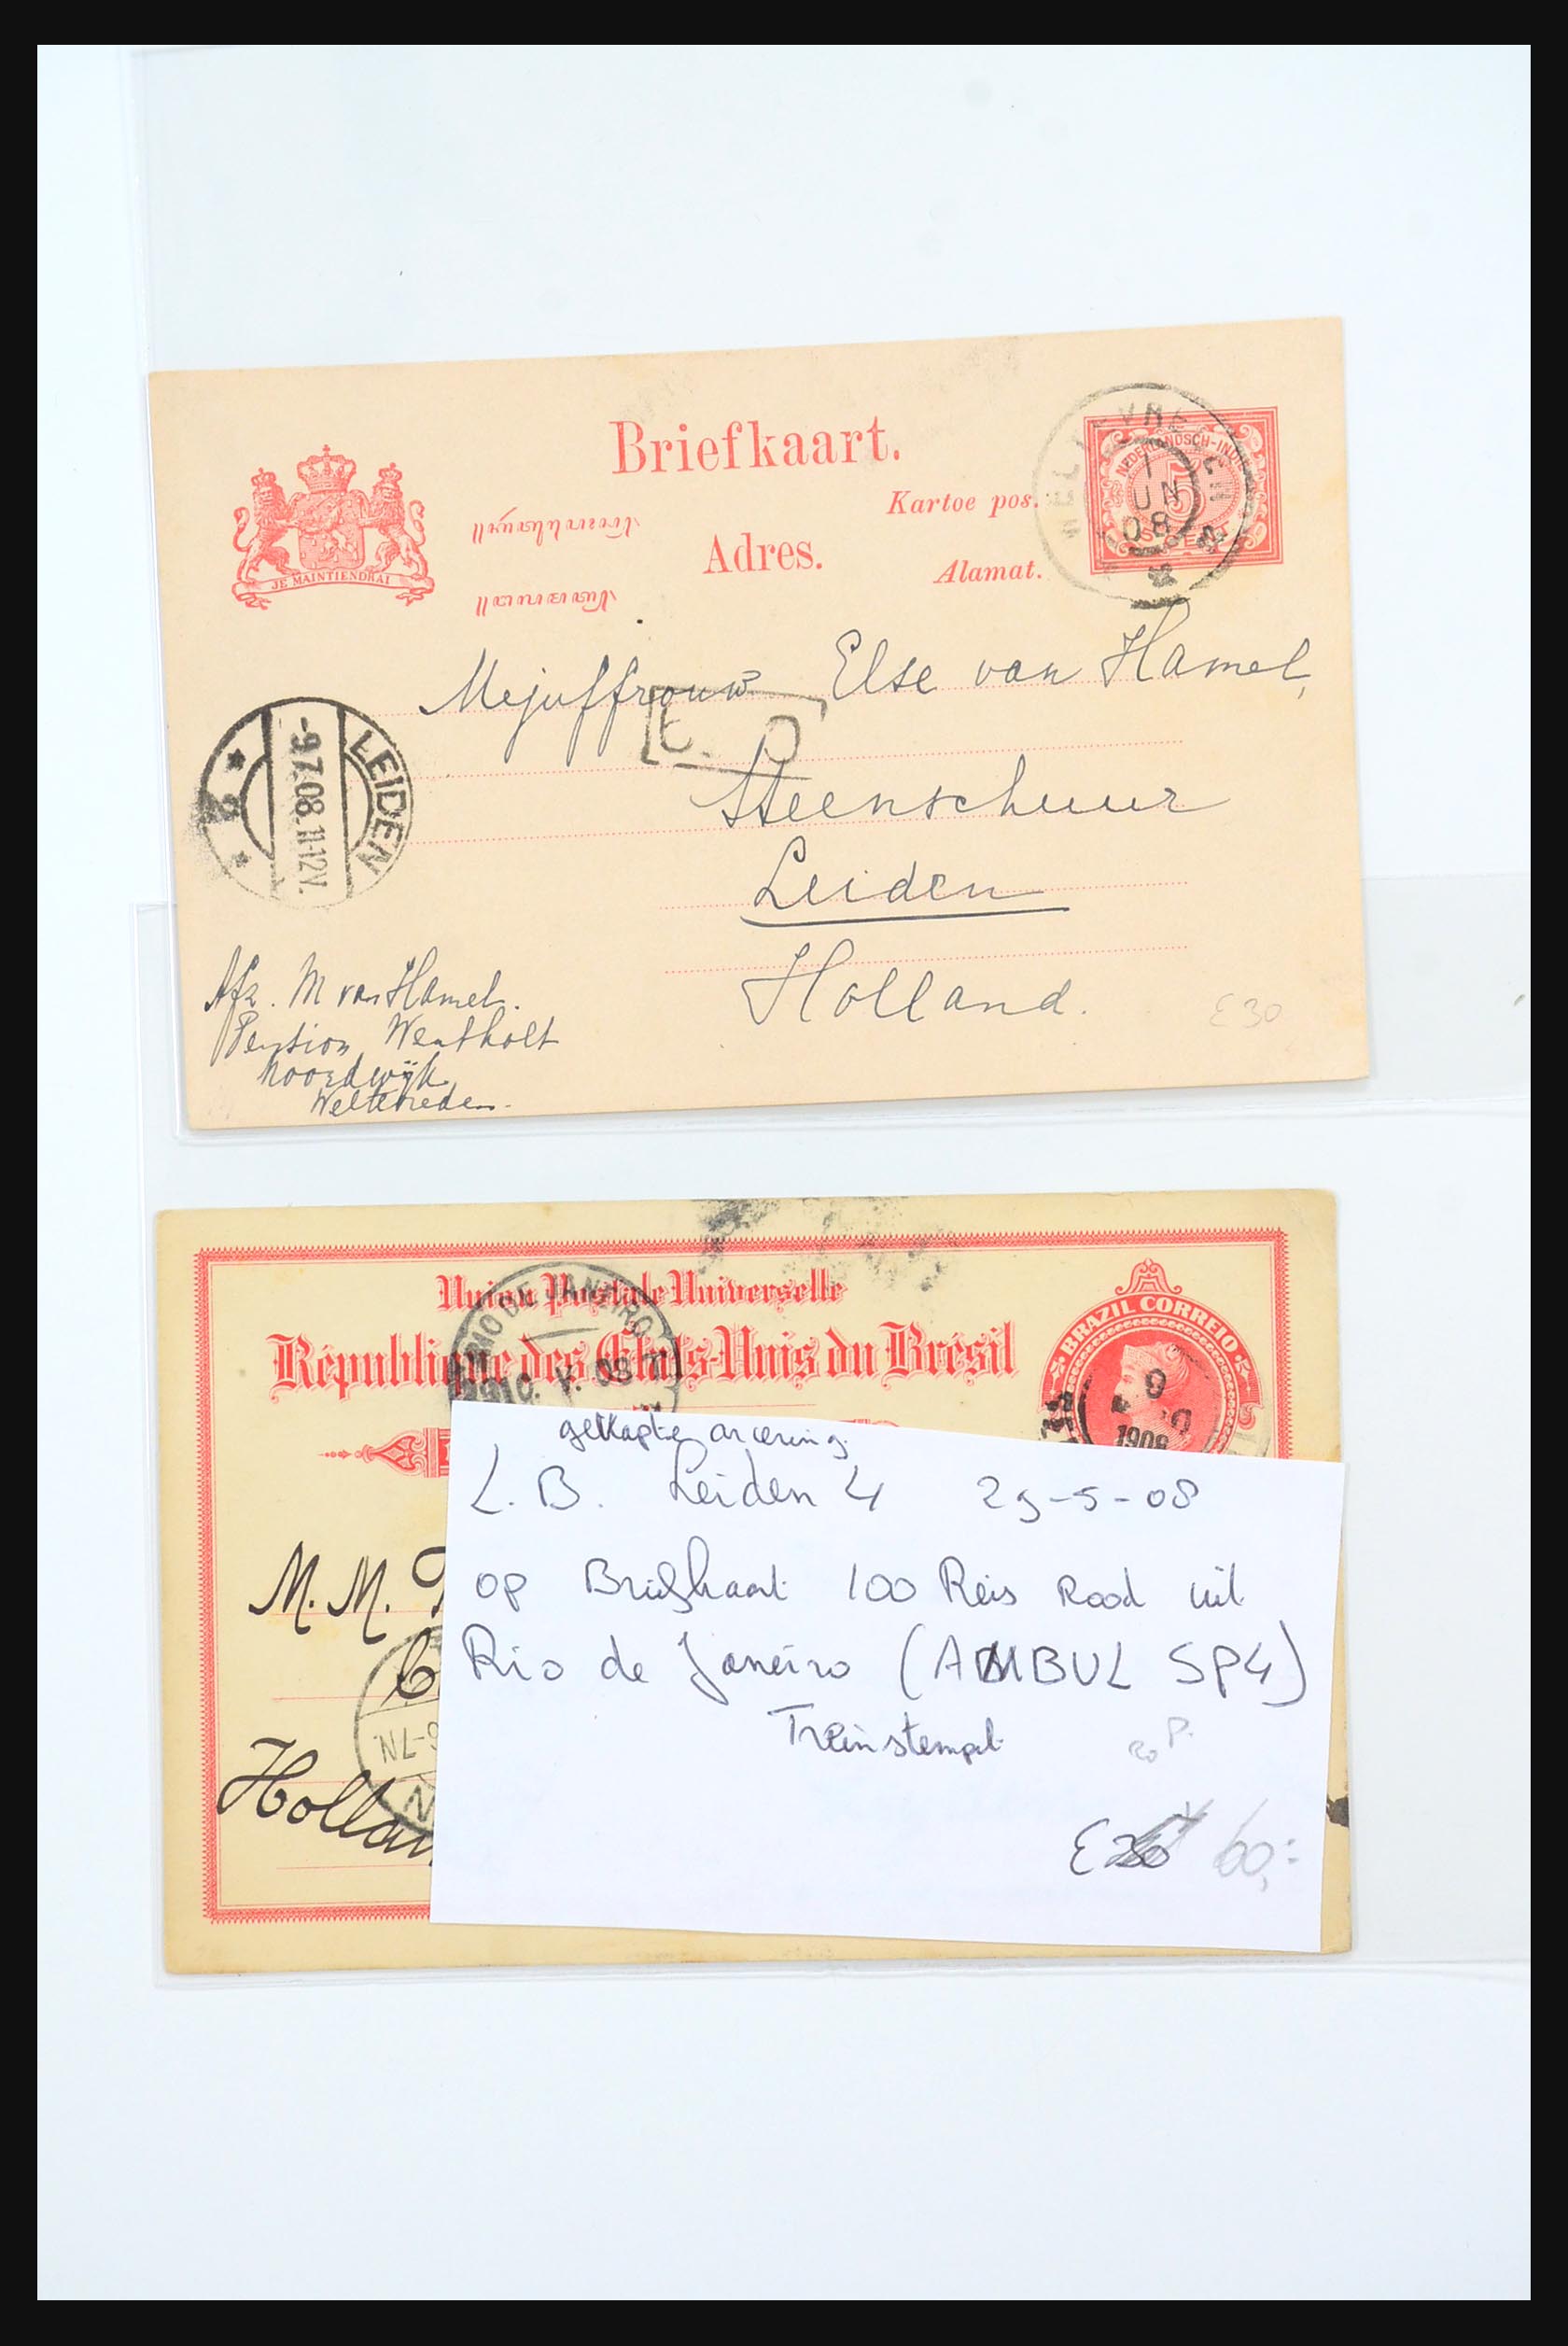 Briefkaart.
Kartoe pos.
Adres.
Alamat.
JE MAINTIENDRAI
NEDERLANDSCH-INDIË
5
LEIDEN
-9.7.08.11-12V.
2
Mejuffrouw Else van Hamel,
Steenschuur
Leiden
Holland.
Afz. M van Hamel.
Pension Wentholt
Noordwijk
Weltevreden.
E 30
Union Postale Universelle
République des États-Unis du Brésil
BRAZIL CORREIO
RIO DE JANEIRO
1908
M. M.
Hollan
gekapte arcering
L.B. Leiden 4 29-5-08
op Briefkaart 100 Reis Rood uit
Rio de Janeiro (AMBUL SP4)
Treinstempel
60,-